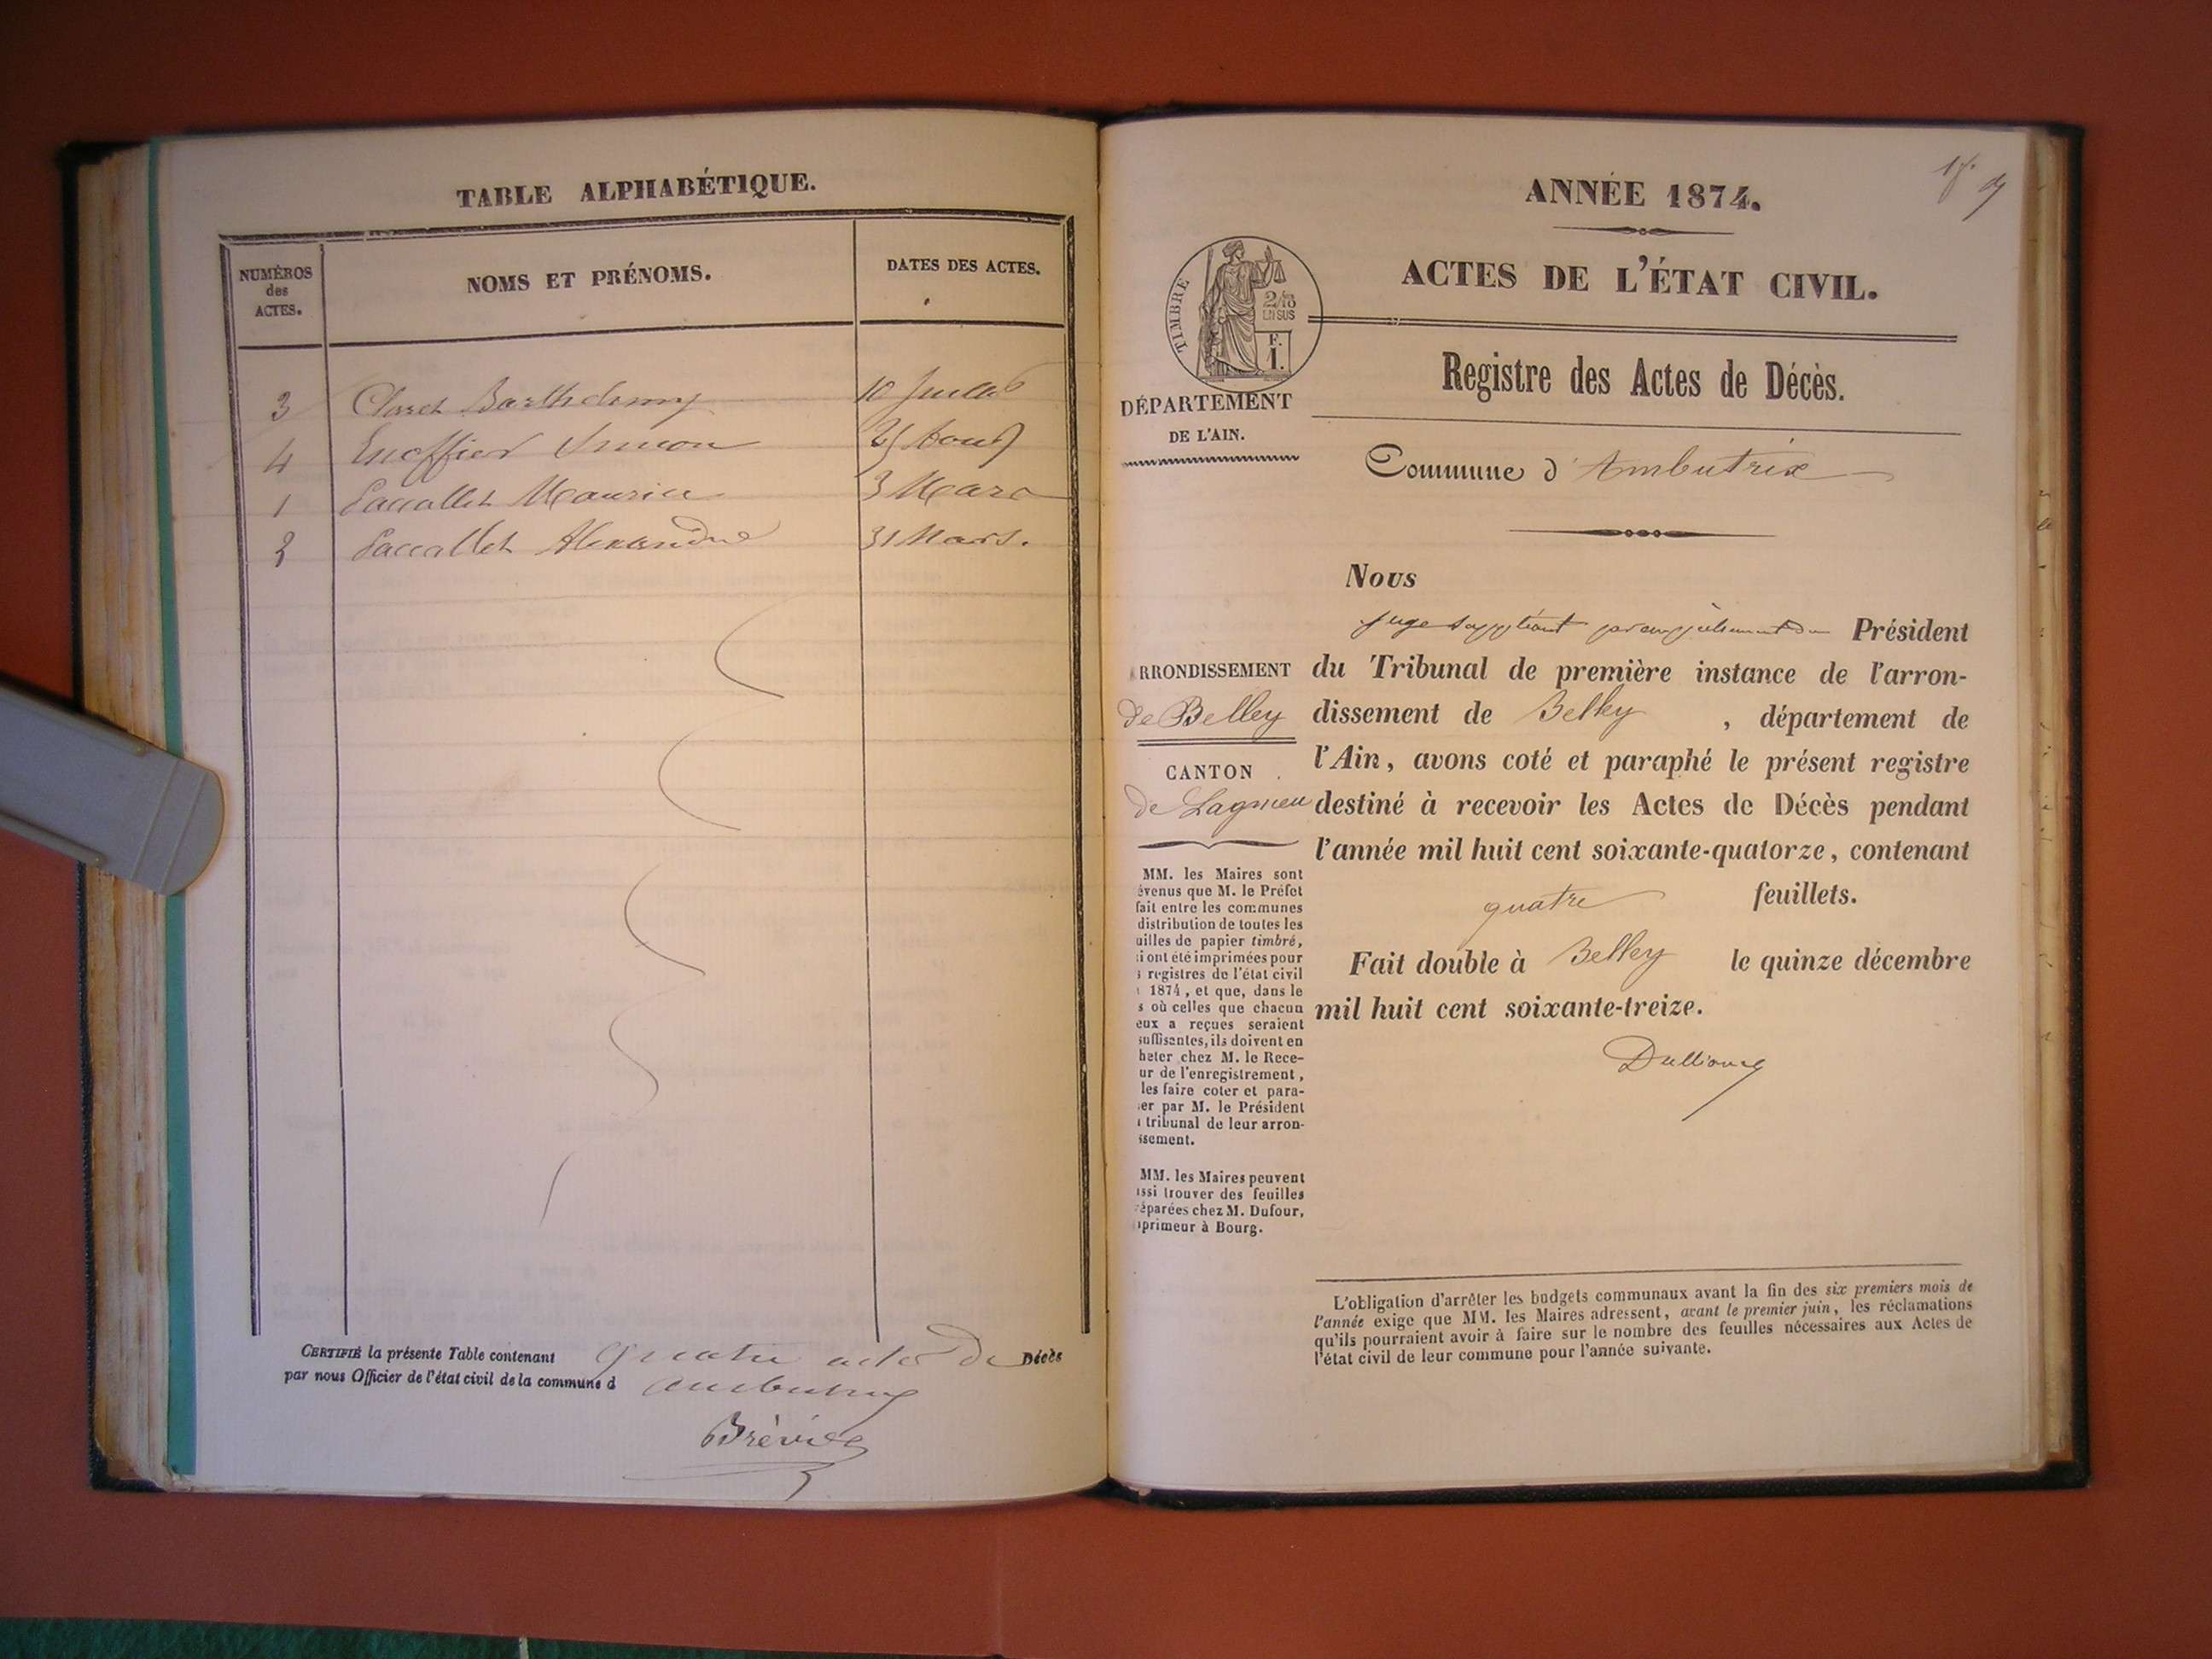 TABLE ALPHABÉTIQUE.
NUMÉROS
des
ACTES.
NOMS ET PRÉNOMS.
DATES DES ACTES.
3 Claret Barthelemy 10 Juillet
4 Simon 25 Aout
1 Paccallet Maurice 3 Mars
2 Paccallet Alexandrine 31 Mars.
CERTIFIÉ la présente Table contenant quatre actes de Décès
par nous Officier de l'état civil de la commune d ambutrix
ANNÉE 1874.
ACTES DE L'ÉTAT CIVIL.
TIMBRE
2/10
EN SUS
F.
1.
Registre des Actes de Décès.
DÉPARTEMENT
DE L'AIN.
Commune d'Ambutrix
Nous
juge suppléant pour empêchement du Président
du Tribunal de première instance de l'arron-
dissement de Belley , département de
l'Ain, avons coté et paraphé le présent registre
destiné à recevoir les Actes de Décès pendant
l'année mil huit cent soixante-quatorze, contenant
quatre feuillets.
Fait double à Belley le quinze décembre
mil huit cent soixante-treize.
RRONDISSEMENT
de Belley
CANTON
de Lagnieu
MM. les Maires sont
évenus que M. le Préfet
fait entre les communes
distribution de toutes les
uilles de papier timbré,
i ont été imprimées pour
s registres de l'état civil
1874, et que, dans le
s où celles que chacun
eux a reçues seraient
suffisantes, ils doivent en
heter chez M. le Rece-
ur de l'enregistrement,
les faire coter et para-
er par M. le Président
tribunal de leur arron-
issement.
MM. les Maires peuvent
ussi trouver des feuilles
éparées chez M. Dufour,
primeur à Bourg.
L'obligation d'arrêter les budgets communaux avant la fin des six premiers mois de
l'année exige que MM. les Maires adressent, avant le premier juin, les réclamations
qu'ils pourraient avoir à faire sur le nombre des feuilles nécessaires aux Actes de
l'état civil de leur commune pour l'année suivante.